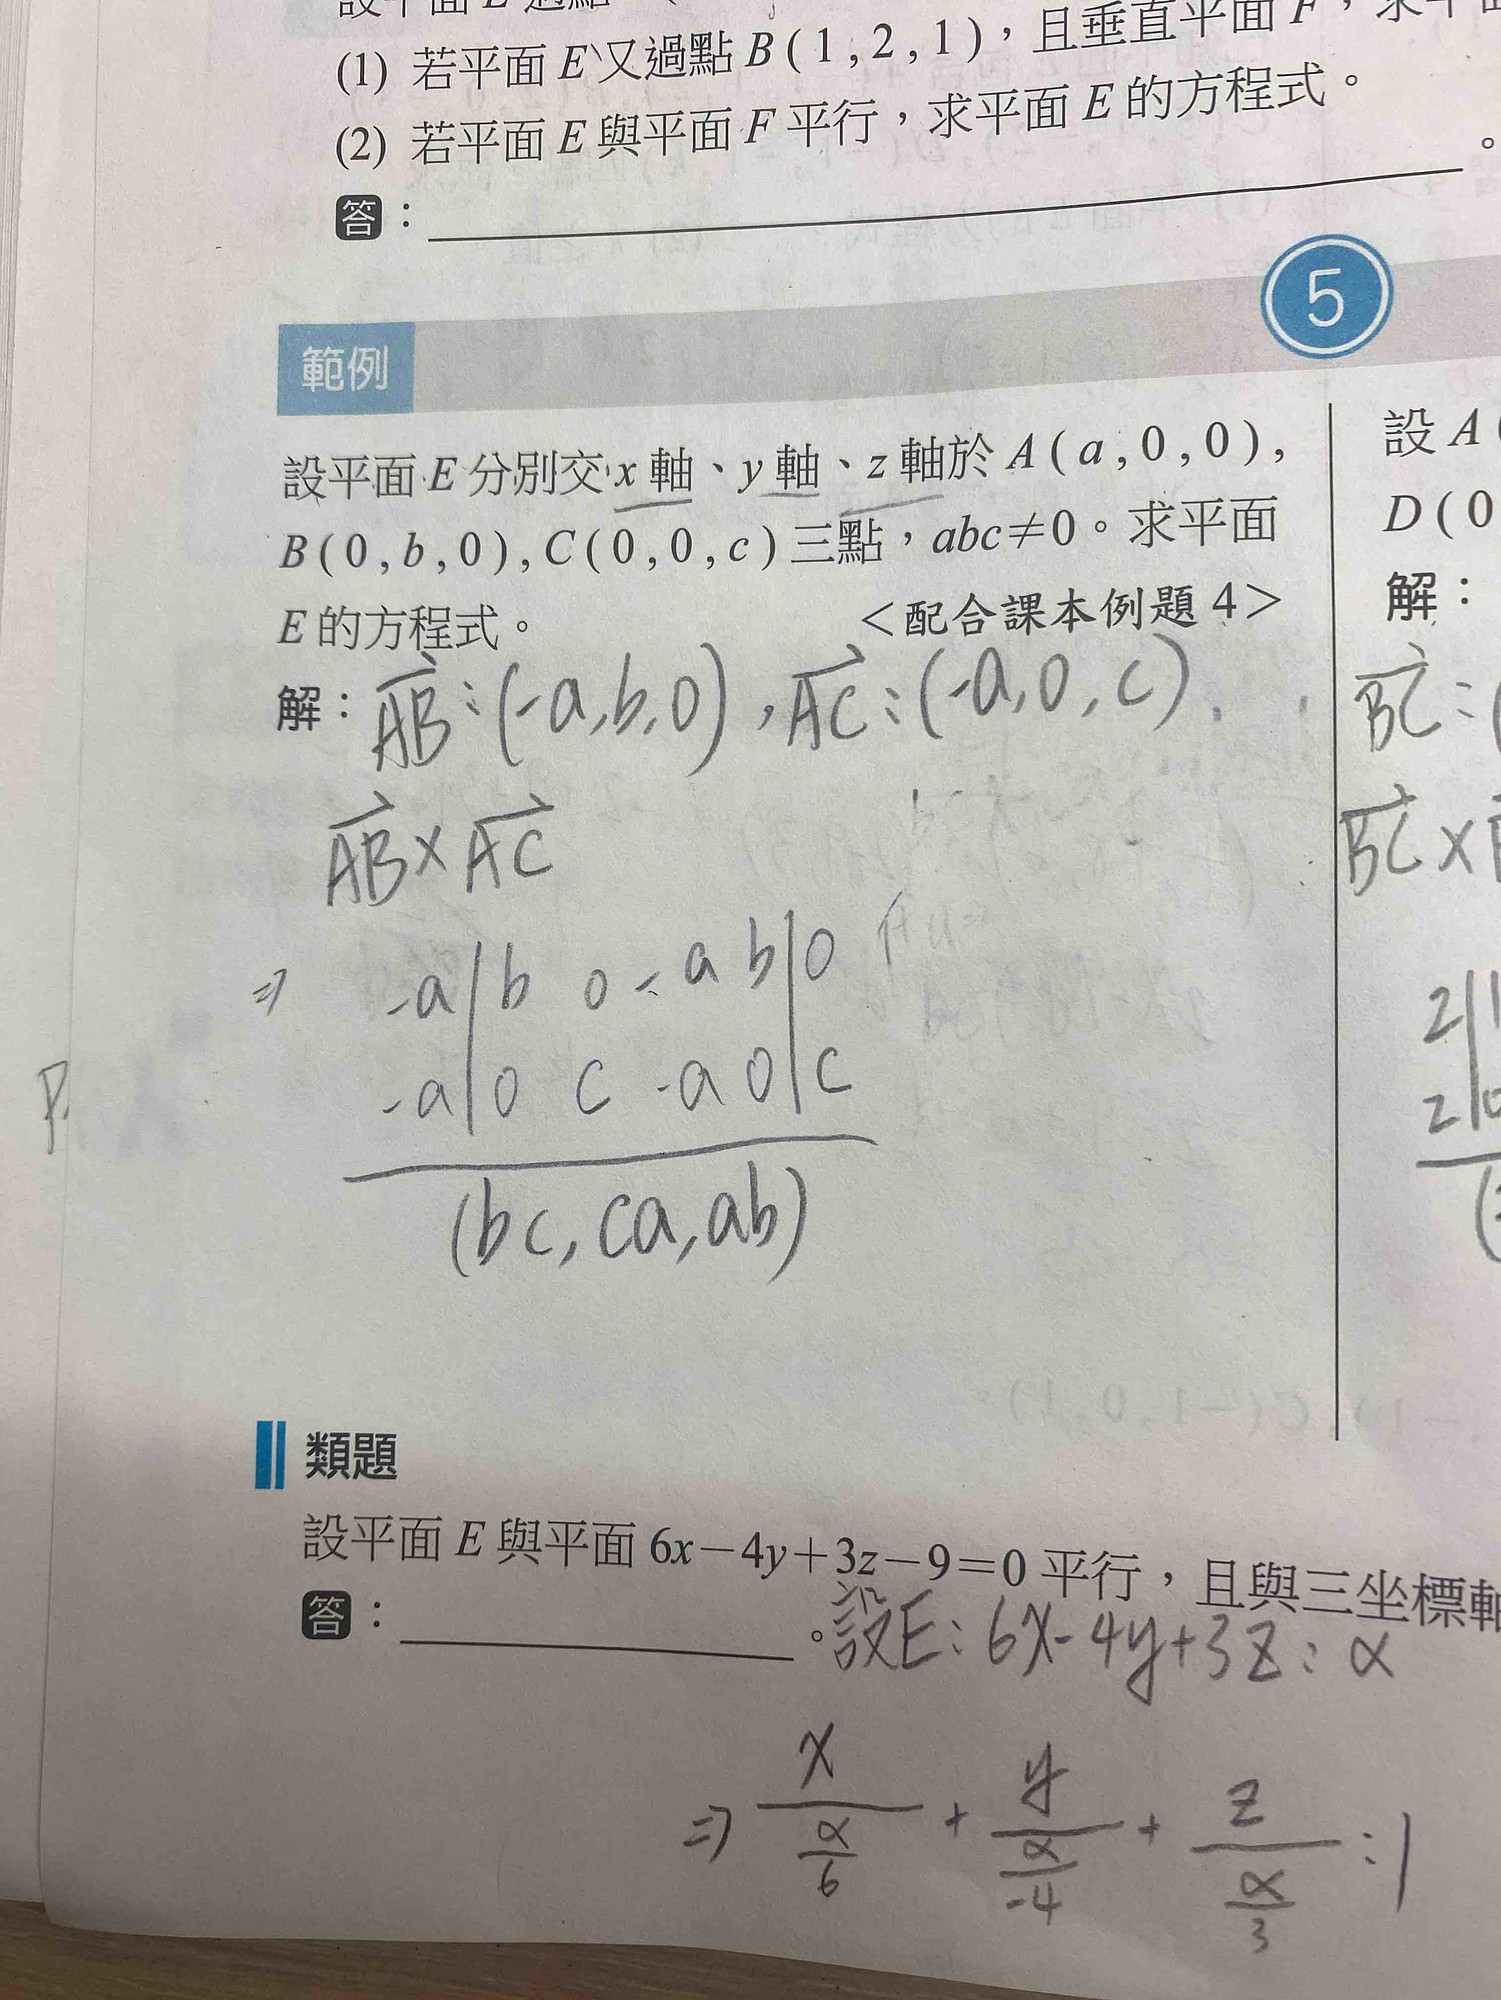 (1) 若平面 E 又過點 B(1,2,1)，且垂直平面 F，求平面
(2) 若平面 E 與平面 F 平行，求平面 E 的方程式。
答：。
5
範例
設平面 E 分別交 x 軸、y 軸、z 軸於 A(a,0,0),
B(0,b,0),C(0,0,c)三點，abc≠0。求平面
E 的方程式。 <配合課本例題 4>
解：AB:(-a,b,0),AC:(-a,0,c)
AB×AC
⇒ -a|b 0 -a b|0
-a|0 c -a 0|c
(bc,ca,ab)
設 A(
D(0
解：
BC:(
BC×
2|1
2|0
(
類題
設平面 E 與平面 6x－4y＋3z－9＝0 平行，且與三坐標軸
答：。設E:6x-4y+3z:α
⇒ x/(α/6) + y/(α/-4) + z/(α/3) :1